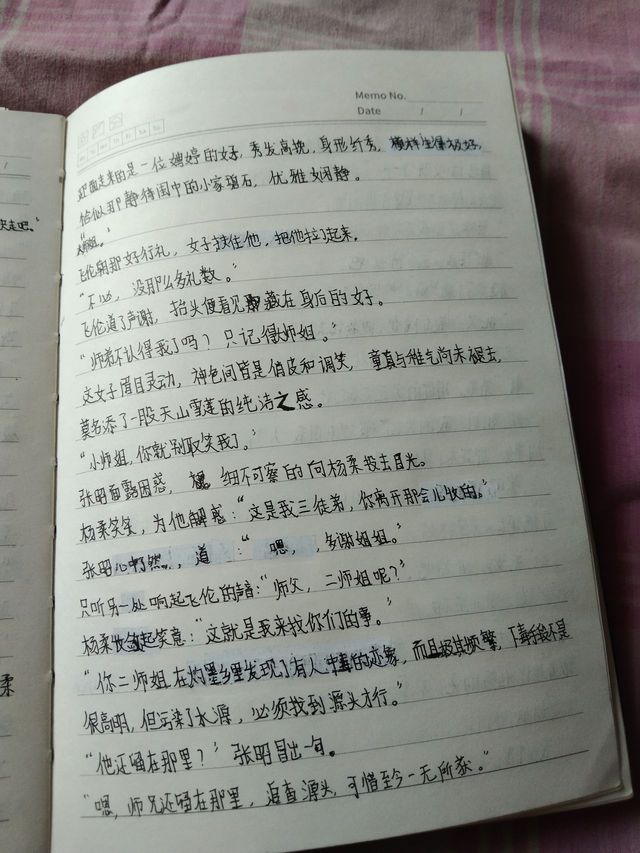 Memo No.
Date / /
迎面走来的是一位娉婷的女子,秀发高挽,身形纤秀,模样生得极好,
恰似那静待闺中的小家碧石,优雅娴静。
“师姐。”
飞伦朝那好行礼,女子扶住他,把他拉了起来。
“不必,没那么多礼数。”
飞伦道了声谢,抬头便看见藏在身后的女子。
“师弟不认得我了吗?只记得师姐。”
这女子眉目灵动,神色间皆是俏皮和调笑,童真与稚气尚未褪去,
莫名添了一股天山雪莲的纯洁之感。
“小师姐,你就别取笑我了。”
张明面露困惑,细不可察的向杨柔投去目光。
杨柔笑笑,为他解惑:“这是我三徒弟,你离开那会儿收的。”
张明心中了然,道:“嗯,多谢姐姐。”
只听另一处响起飞伦的声音:“师父,二师姐呢?”
杨柔收起笑意:“这就是我来找你们的事。”
“你二师姐在灼墨乡里发现了有人中毒的迹象,而且极其频繁,下毒手段不是
很高明,但污染了水源,必须找到源头才行。”
“他还留在那里?”张明冒出一句。
“嗯,师兄还留在那里,追查源头,可惜至今一无所获。”
柔